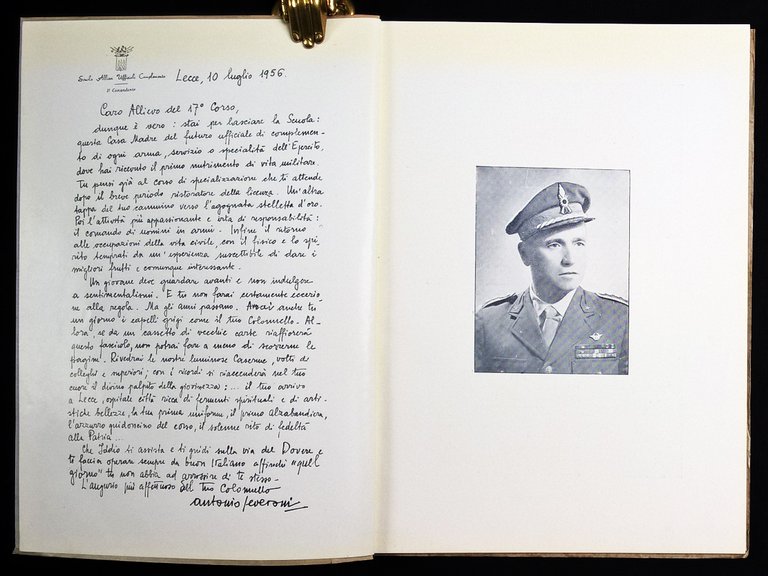 Scuola Allievi Ufficiali Complemento
Il Comandante
Lecce, 10 luglio 1956
Caro Allievo del 17° Corso,
dunque è vero: stai per lasciare la Scuola:
questa Casa Madre del futuro ufficiale di complemen-
to di ogni arma, servizio o specialità dell'Esercito,
dove hai ricevuto il primo nutrimento di vita militare.
Tu pensi già al corso di specializzazione che ti attende
dopo il breve periodo ristoratore della licenza. Un'altra
tappa del tuo cammino verso l'agognata stelletta d'oro.
Poi l'attività più appassionante e irta di responsabilità:
il comando di uomini in armi. Infine il ritorno
alle occupazioni della vita civile, con il fisico e lo spi-
rito temprati da un'esperienza suscettibile di dare i
migliori frutti e comunque interessante.
Un giovane deve guardare avanti e non indulgere
a sentimentalismi. E tu non farai certamente eccezio-
ne alla regola. Ma gli anni passano. Avrai anche tu
un giorno i capelli grigi come il tuo Colonnello. Al-
lora, se da un cassetto di vecchie carte riaffiorerà
questo fascicolo, non potrai fare a meno di scorrerne le
pagine. Rivedrai le nostre luminose Caserme, volti di
colleghi e superiori; con i ricordi si riaccenderà nel tuo
cuore il divino palpito della giovinezza: ... il tuo arrivo
a Lecce, ospitale città ricca di fermenti spirituali e di arti-
stiche bellezze, la tua prima uniforme, il primo Alzabandiera,
l'azzurro guidoncino del corso, il solenne rito di fedeltà
alla Patria...
Che Iddio ti assista e ti guidi sulla via del Dovere e
ti faccia operare sempre da buon Italiano affinché "quel
giorno" tu non abbia ad arrossire di te stesso.
L'augurio più affettuoso del tuo Colonnello
Antonio Severoni